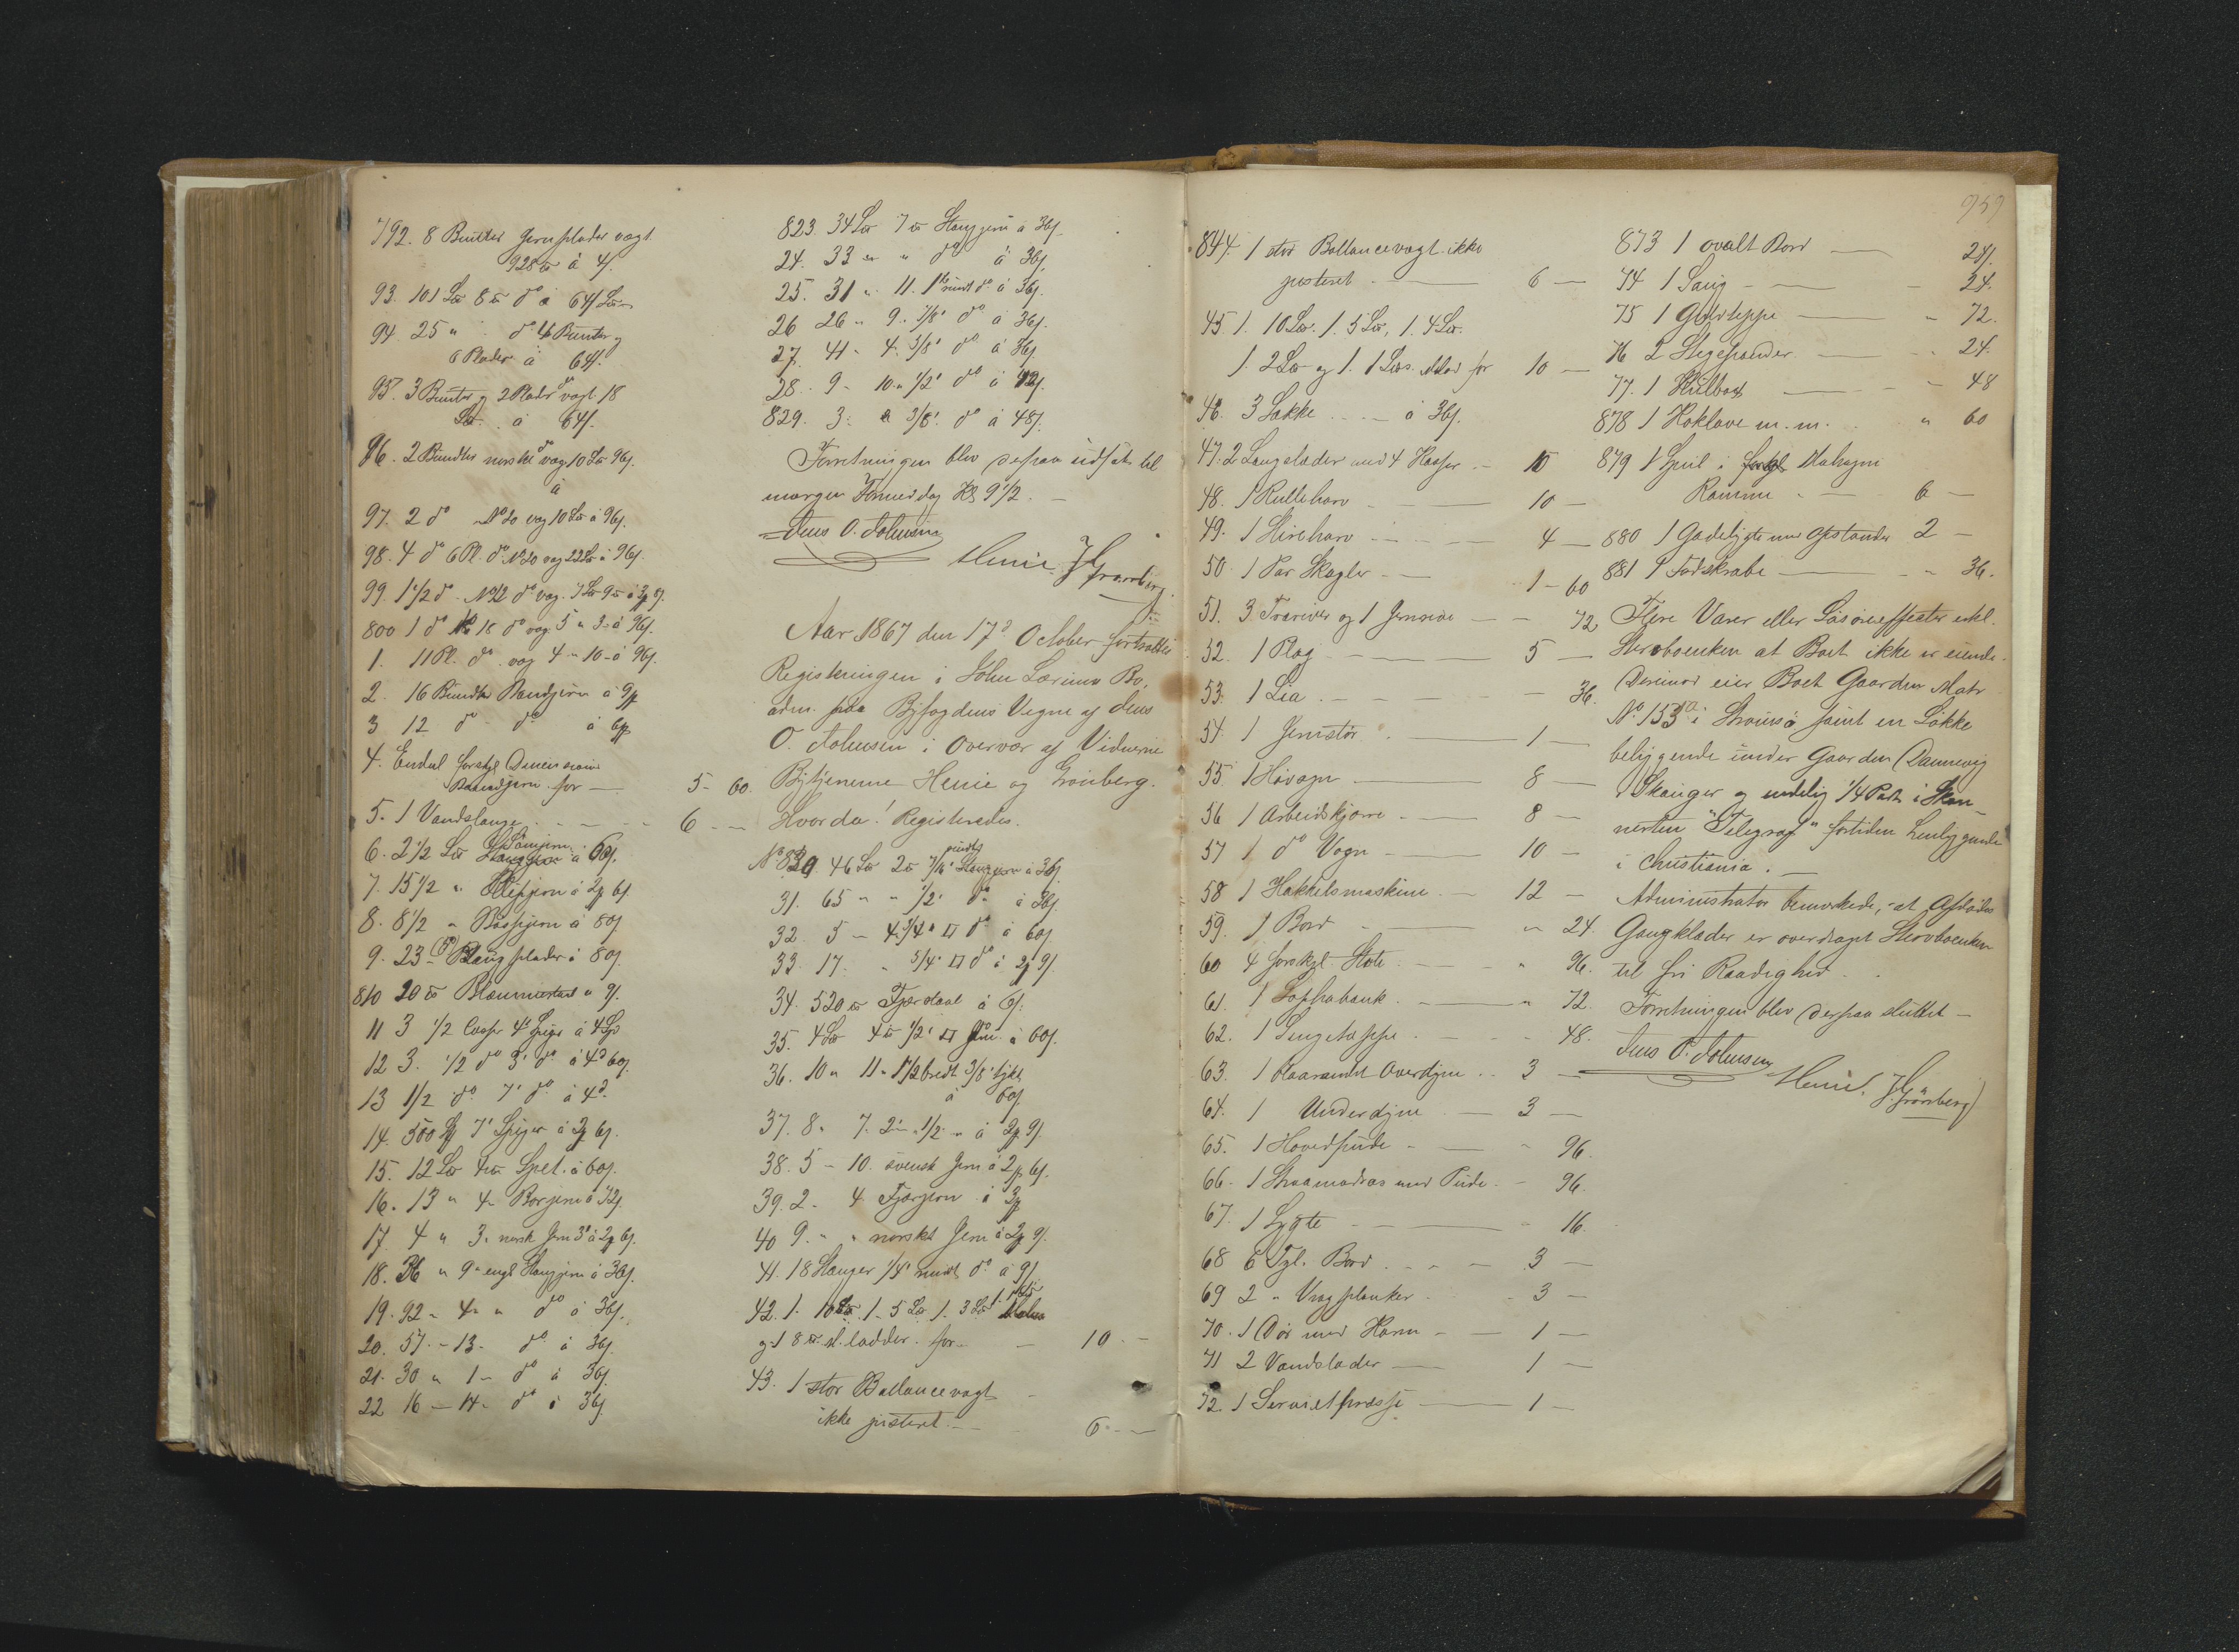 792. 8 Bunter Jernplader vægt
928 ℔ à 4 s.
93. 101 L℔ 8 ℔ do à 64 s L℔
94. 25 " do 4 Bunter og
6 Plader à 64 s.
95. 3 Bunter og 2 Plader do vægt 18
L℔ à 64 s.
96. 2 Bundter norske do væg 10 L℔ 96 s.
à
97. 2 do No 20 væg 10 L℔ à 96 s.
98. 4 do 6 Pl. do No 20 væg 22 L℔ à 96 s.
99. 1 1/2 do No 22 do væg. 7 L℔ 9 ℔ à
800 1 do No 18 do væg 5 " 3 - à 96 s.
1. 11 Pl. do væg 4 " 10 - à 96 s.
2. 16 Bundter Baandjern à
3 12 do do à
4. Endel forskjl Dimensioner
Baandjern for — 5 - 60.
5. 1 Vandslange 6 —
6. 2 1/2 L℔ à 60 s.
7. 15 1/2 "
8. 8 1/2 " à 80 s.
9. 23 - plader à 80 s.
810 20 ℔ à 9 s.
11 3 1/2 4" Spiger à
12 3. 1/2 do 3" do à
13 1/2 do 7" do à
14. 500 7" Spiger à
15. 12 L℔ à 60 s.
16. 13 " 4 - à 72 s.
17. 4 " 3 " norsk Jern
18. 36 " 9 " engl Stangjern à 36 s.
19. 92 - 4 " " do à 36 s.
20. 57. - 13 - do à 36 s.
21. 30 " 1 - do à 36 s.
22 16 — 14 - do à 36 s.
823. 34 L℔ 7 ℔ Stangjern à 36 s.
24. 33 " " do à 36 s.
25. 31 " 11. 1" rundt do à 36 s.
26 26 " 9. 7/8" do à 36 s.
27. 41 - 4. 5/8" do à 36 s.
28. 9 - 10 " 1/2" do à 42 s.
829. 3. 3/8" do à 48 s.
Forretningen blev derpaa udsat til
morgen Formiddag Kl 9 1/2. —
Jens O. Johnsen
Henie. J Grønberg
Aar 1867 den 17de October fortsattes
Registreringen i John Larsens Bo,
adm. paa Byfogdens Vegne af Jens
O. Johnsen i Overvær af Vidnerne
Bytjenerne Henie og Grønberg.
Hvorda! Registreredes.
No 830. 46 L℔ 2 ℔ 7/16" rundt Stangjern à 36 s.
31. 65 " " 1/2" do à 36 s.
32. 5 — 4. 3/4 " do à 60 s.
33. 17. " 5/4" do à
34. 520 ℔ Fjærstaal à 6 s.
35. 4 L℔ 4 ℔ 1/2" Jern à 60 s.
36. 10 " 11 " 1 1/2 bredt 3/8" tykt
à 60 s.
37. 8 " 7. 2" 1/2" à
38. 5 - 10. svensk Jern à
39. 2 - 4. Fjærjern à
40 9. " " norskt Jern à
41. 18 Stænger 1/4" rundt do à 9 s.
42. 1. 10 L℔ 1. 5 L℔ 1. 3 L℔
og 1 8 ℔ st. Lodder. for — 10 —
43. 1 stor Ballancevægt
ikke justeret. 6 —
959
844. 1 stor Ballancevægt ikke
justeret 6 —
45 1. 10 L℔. 1. 5 L℔, 1. 4 L℔.
1. 2 L℔ og 1. 1 L℔ for 10 —
46. 3 Sække à 36 s.
47. 2 Langstader med 4 Kasser — 10
48. 1 Rulleharv 10 —
49. 1 Svireharv 4 —
50 1 Par Skagler 1 - 60
51. 3 Træriver og 1 Jernrive — 72
52. 1 Plog 5 —
53. 1 Lia — 36.
54. 1 Jernstør 1 —
55. 1 Høvogn 8 —
56 1 Arbeidskjærre 8 —
57 1 do Vogn 10 —
58 1 Hakkelsmaskine 12 —
59. 1 Bord " 24.
60 4 forskjl. Stole " 96.
61. 1 Sophabænk " 72.
62. 1 Sengeteppe 48.
63. 1 blaarandet Overdyne 3 —
64. 1 Underdyne 3 —
65. 1 Hovedpude 96.
66. 1 Straamadras med Pude 96.
67. 1 Lygte 16.
68 6 Tyl. Bord 3 —
69 2 " Vragplanker 3 —
70. 1 Dør med Karm 1 —
71 2 Vandstader 1 —
72. 1 Servietpresse 1 —
873 1 ovalt Bord — 24 s.
74 1 Sang — 24.
75 1 Gulvteppe " 72.
76 2 Stegepander 24.
77. 1 Kulboks 48
878 1 Høklove m. m. " 60
879 1 Speil i Mahogni
Ramme 6 —
880 1 Gadelygte med Opstander 2 —
881 1 Fodskrabe — 36.
Flere Varer eller Løsøreeffecter erkl.
Stervboenken at Boet ikke er eiende.
Derimod eier Boet Gaarden Matr
No. 153 a i Strømsø samt en Løkke
beliggende under Gaarden Dannevig
i Skanger og endelig 1/4 Part i Skon-
nerten "Telegraf" fortiden henliggende
i Christiania. —
Administrator bemærkede, at Afdødes
Gangklæder er overdraget Stervboenken
til fri Raadighed.
Forretningen blev derpaa sluttet —
Jens O. Johnsen
Henie. J Grønberg